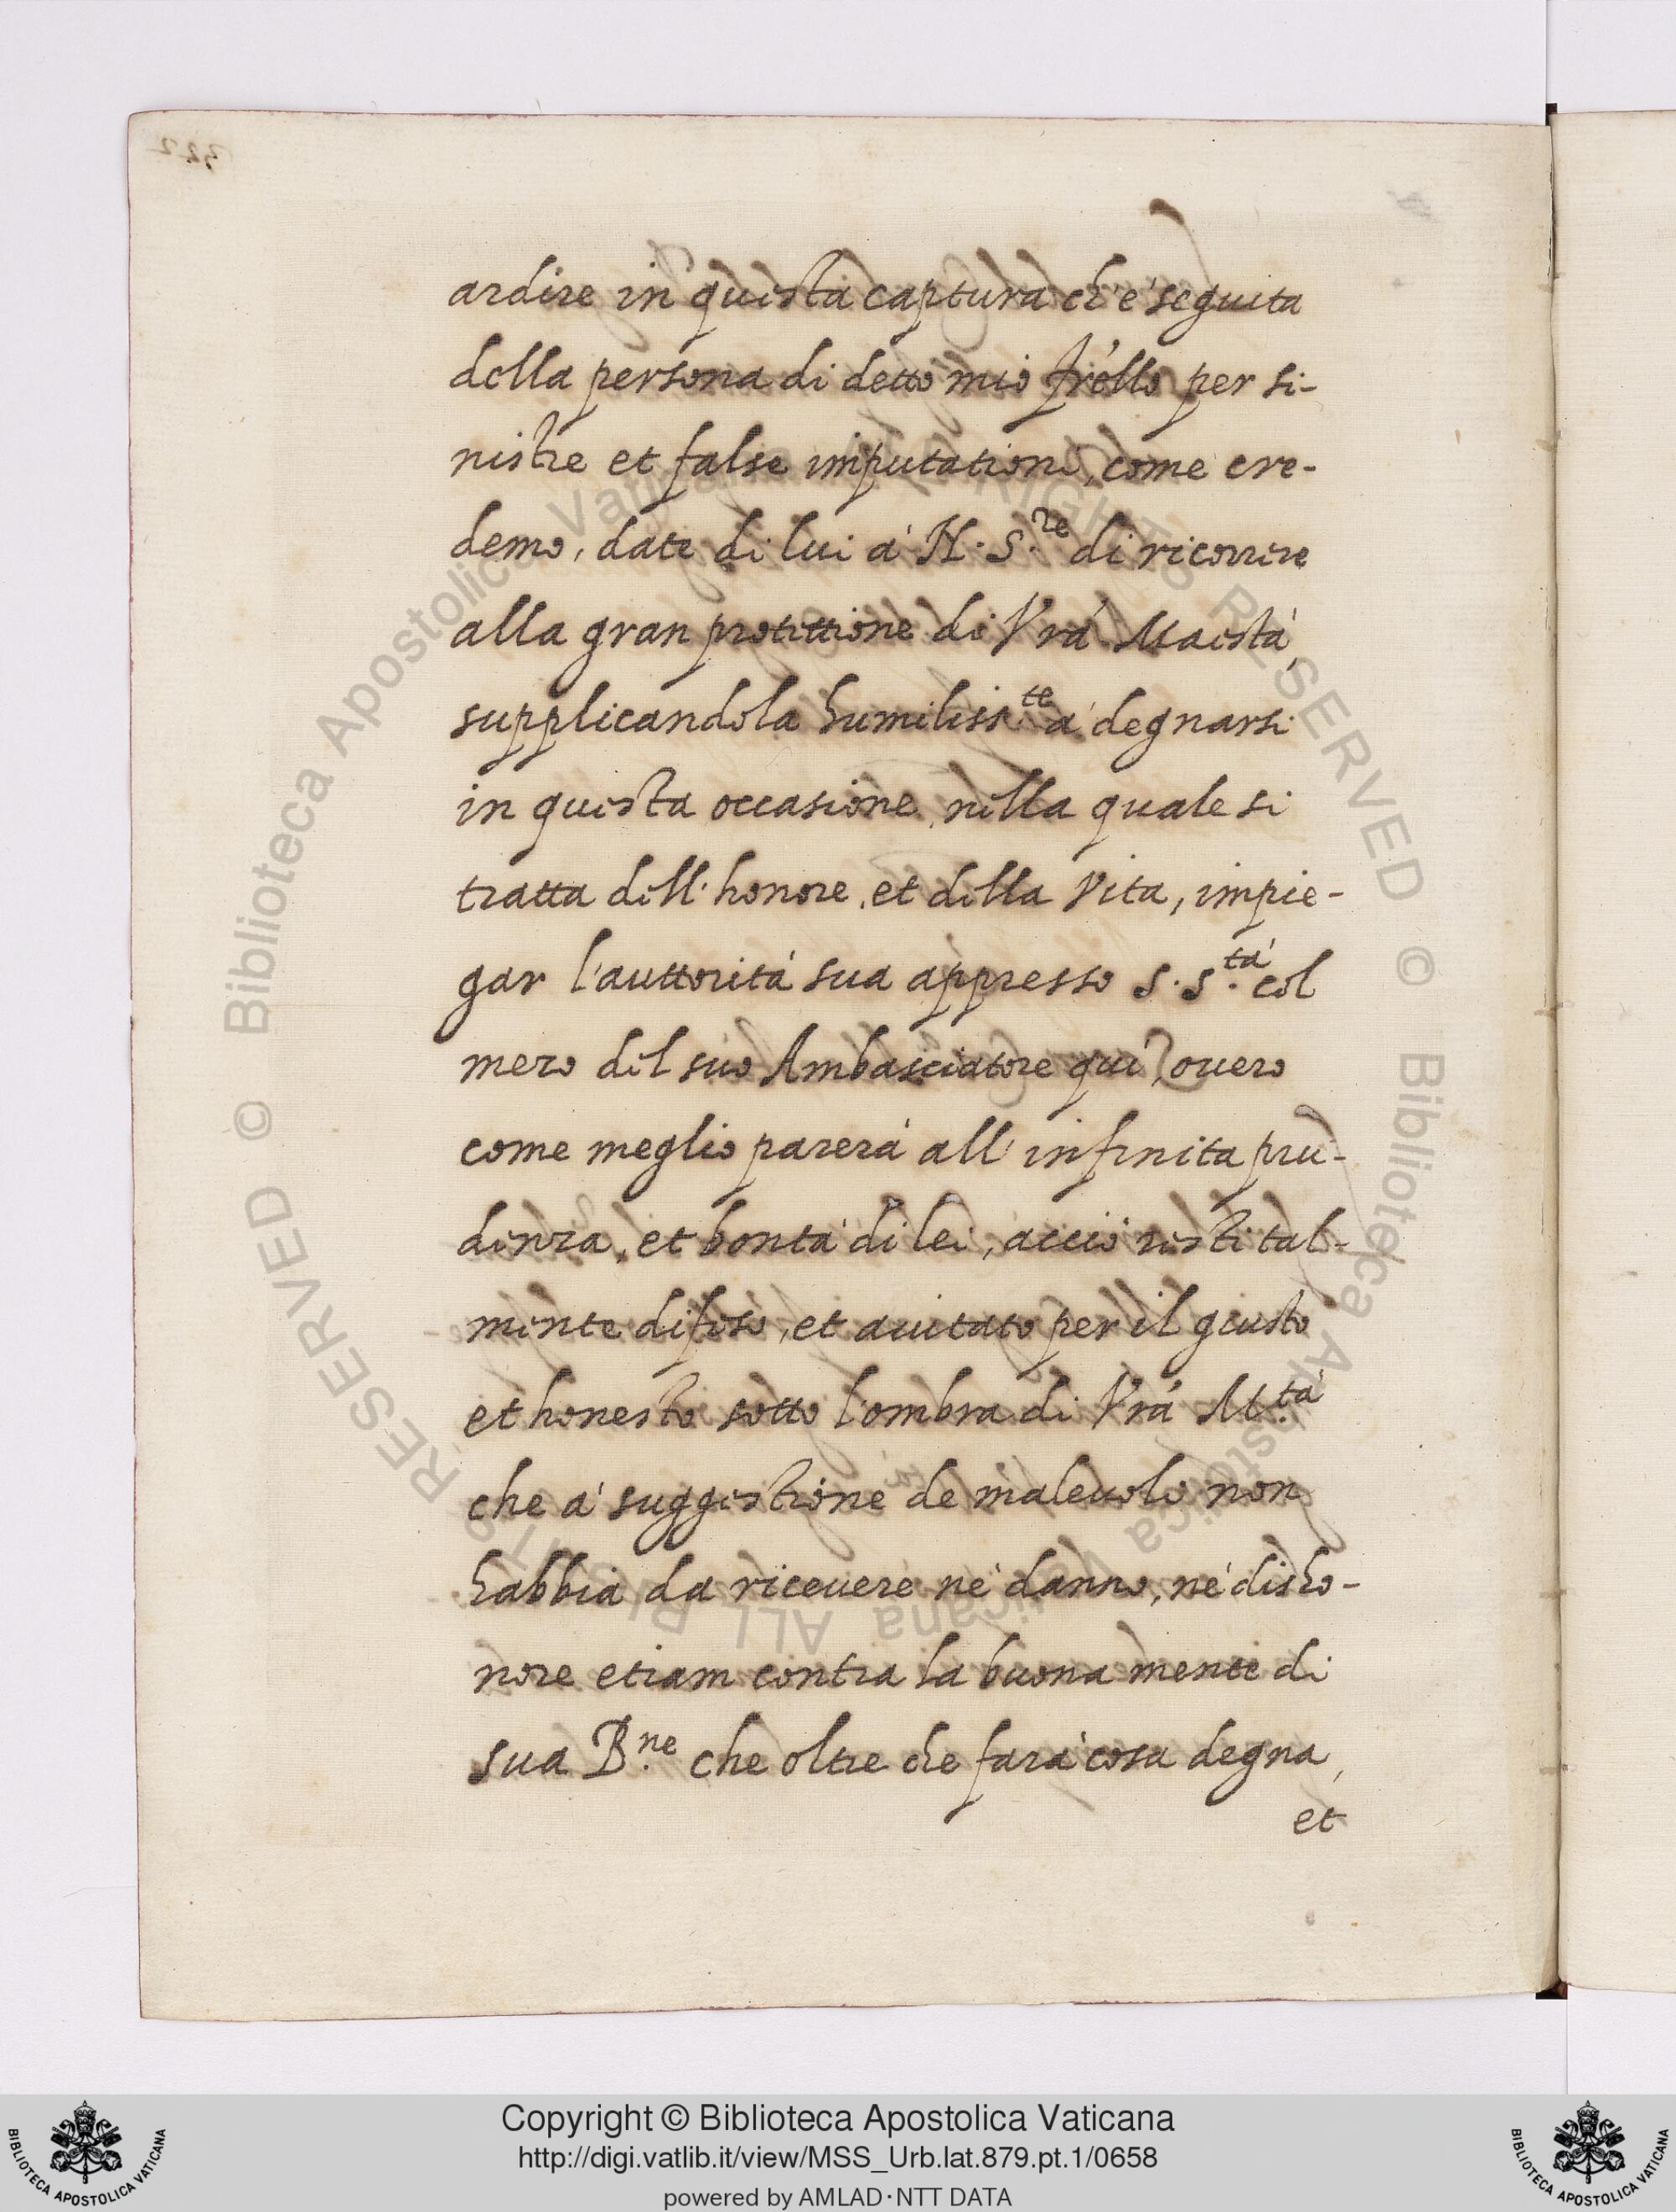 ardire in questa captura ch'è seguita
della persona di detto mio fr̃ello per si-
nistre et false imputationi, come cre-
demo, date di lui à N. S.re di ricorrere
alla gran protettione di Vrã Maestà,
supplicandola humiliss.te à degnarsi
in questa occasione, nella quale si
tratta dell'honore, et della Vita, impie-
gar l'auttorità sua appresso S. S.tà col
mezo del suo Ambasciatore qui, ouero
come meglio parerà all'infinita pru-
denza, et bontà di lei, acciò resti tal-
mente difeso, et aiutato per il giusto
et honesto sotto l'ombra di Vrã M.tà
che à suggestione de maleuoli non
habbia da riceuere nè danno, nè disho-
nore etiam contra la buona mente di
sua B.ne che oltre che farà cosa degna,
et
Copyright © Biblioteca Apostolica Vaticana
http://digi.vatlib.it/view/MSS_Urb.lat.879.pt.1/0658
powered by AMLAD·NTT DATA
BIBLIOTECA APOSTOLICA VATICANA
BIBLIOTECA APOSTOLICA VATICANA
© Biblioteca Apostolica Vaticana ALL RIGHTS RESERVED © Biblioteca Apostolica Vaticana ALL RIGHTS RESERVED